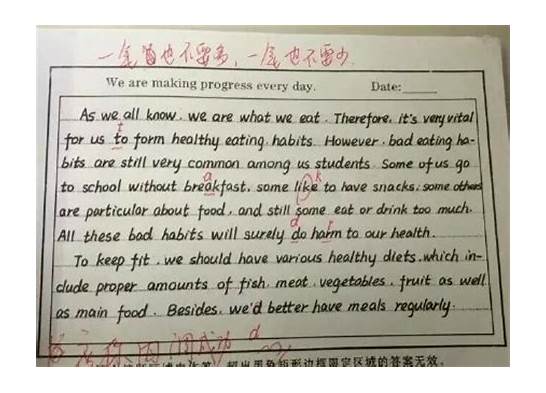 一笔画也不要多，一笔也不要少
We are making progress every day. Date:
As we all know, we are what we eat. Therefore, it's very vital
t
for us to form healthy eating habits. However, bad eating ha-
bits are still very common among us students. Some of us go
a k
to school without breakfast, some like to have snacks, some others
are particular about food, and still some eat or drink too much.
d r
All these bad habits will surely do harm to our health.
To keep fit, we should have various healthy diets, which in-
clude proper amounts of fish, meat, vegetables, fruit as well
as main food. Besides, we'd better have meals regularly.
你 成功 d
超出黑色矩形边框限定区域的答案无效。